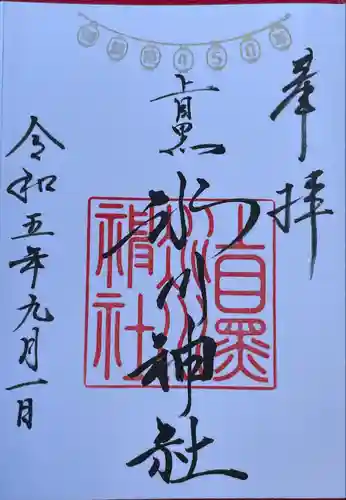 奉拝
上目黒
氷川神社
令和五年九月一日
上目黒氷川神社